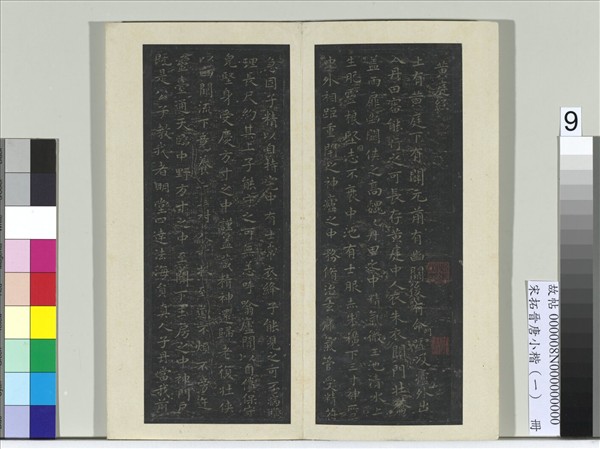 黄庭經
上有黄庭下有關元前有幽闕後有命 廬外出
入丹田審能行之可長存黄庭中人衣朱衣關門壯籥
蓋兩扉幽闕俠之高巍 丹田之中精氣微玉池清水上
生肥靈根堅志不衰中池有士服赤朱橫下三寸神所
外相距重閉之神廬之中務脩治玄 氣管受精符
急固子精以自持宅中有士常衣絳子能見之可不病橫
理長尺約其上子能守之可無恙呼噏廬間以自償保守
完堅身受慶方寸之中謹蓋藏精神還歸老復壯俠
幽闕流下竟養子玉樹 不煩不旁迕
靈臺通天臨中野方寸之中至關下玉房之中神門戶
既是公子教我者明堂四達法海員真人子丹當我前
9
故帖 000008N000000000
宋拓晉唐小楷（一） 冊